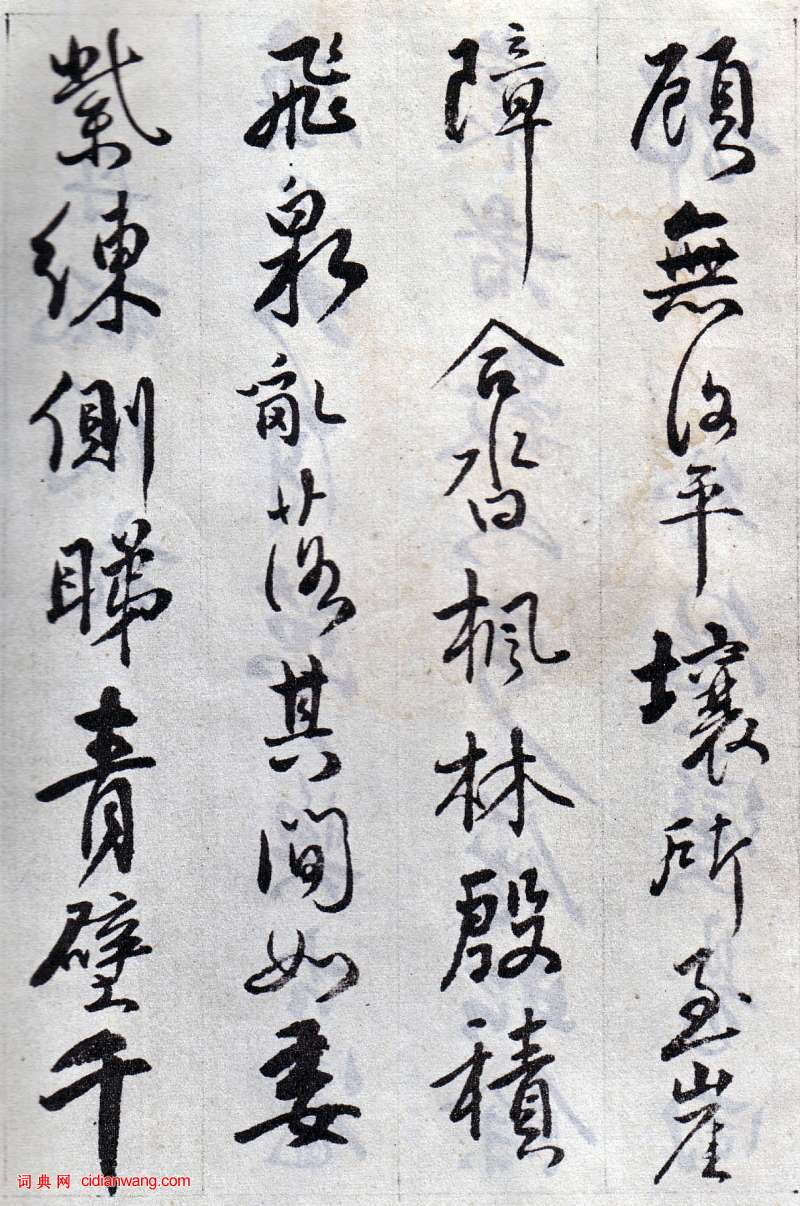 顧無復平壤所至崖
障合沓楓林殷積
飛泉亂落其間如委
紫練側睇青壁千
词典网 cidianwang.com